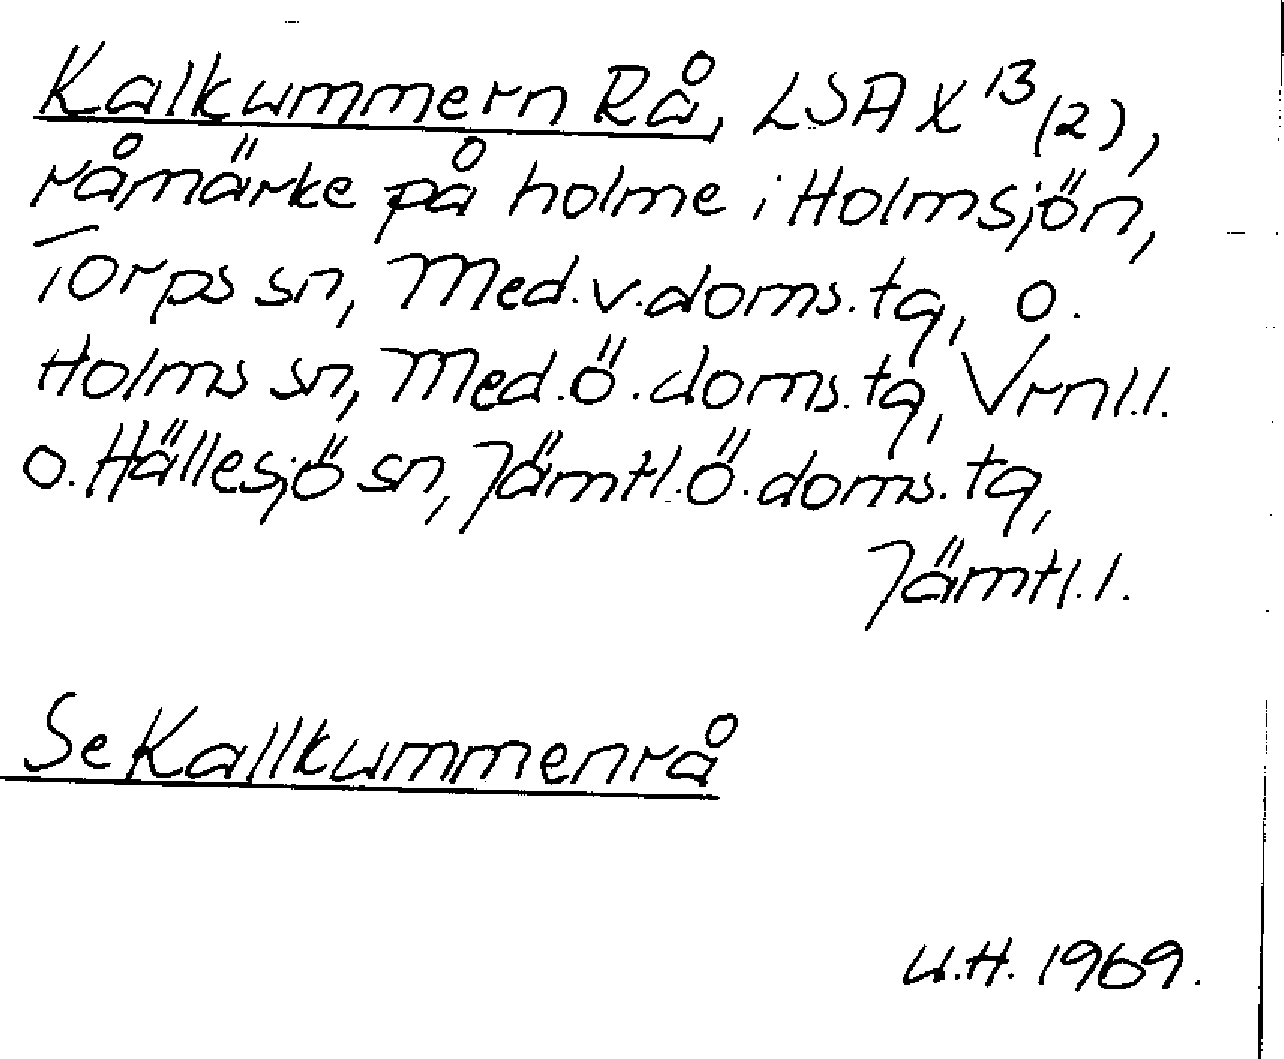 Kalkummern Rå, LSA X 13 (2),
råmärke på holme i Holmsjön,
Torps sn, Med.v.doms.tg, o.
Holms sn, Med.ö.doms.tg, Vrnl.l.
o. Hällesjö sn, Jämtl.ö.doms.tg,
Jämtl.l.
Se Kallkummenrå
U.H. 1969.